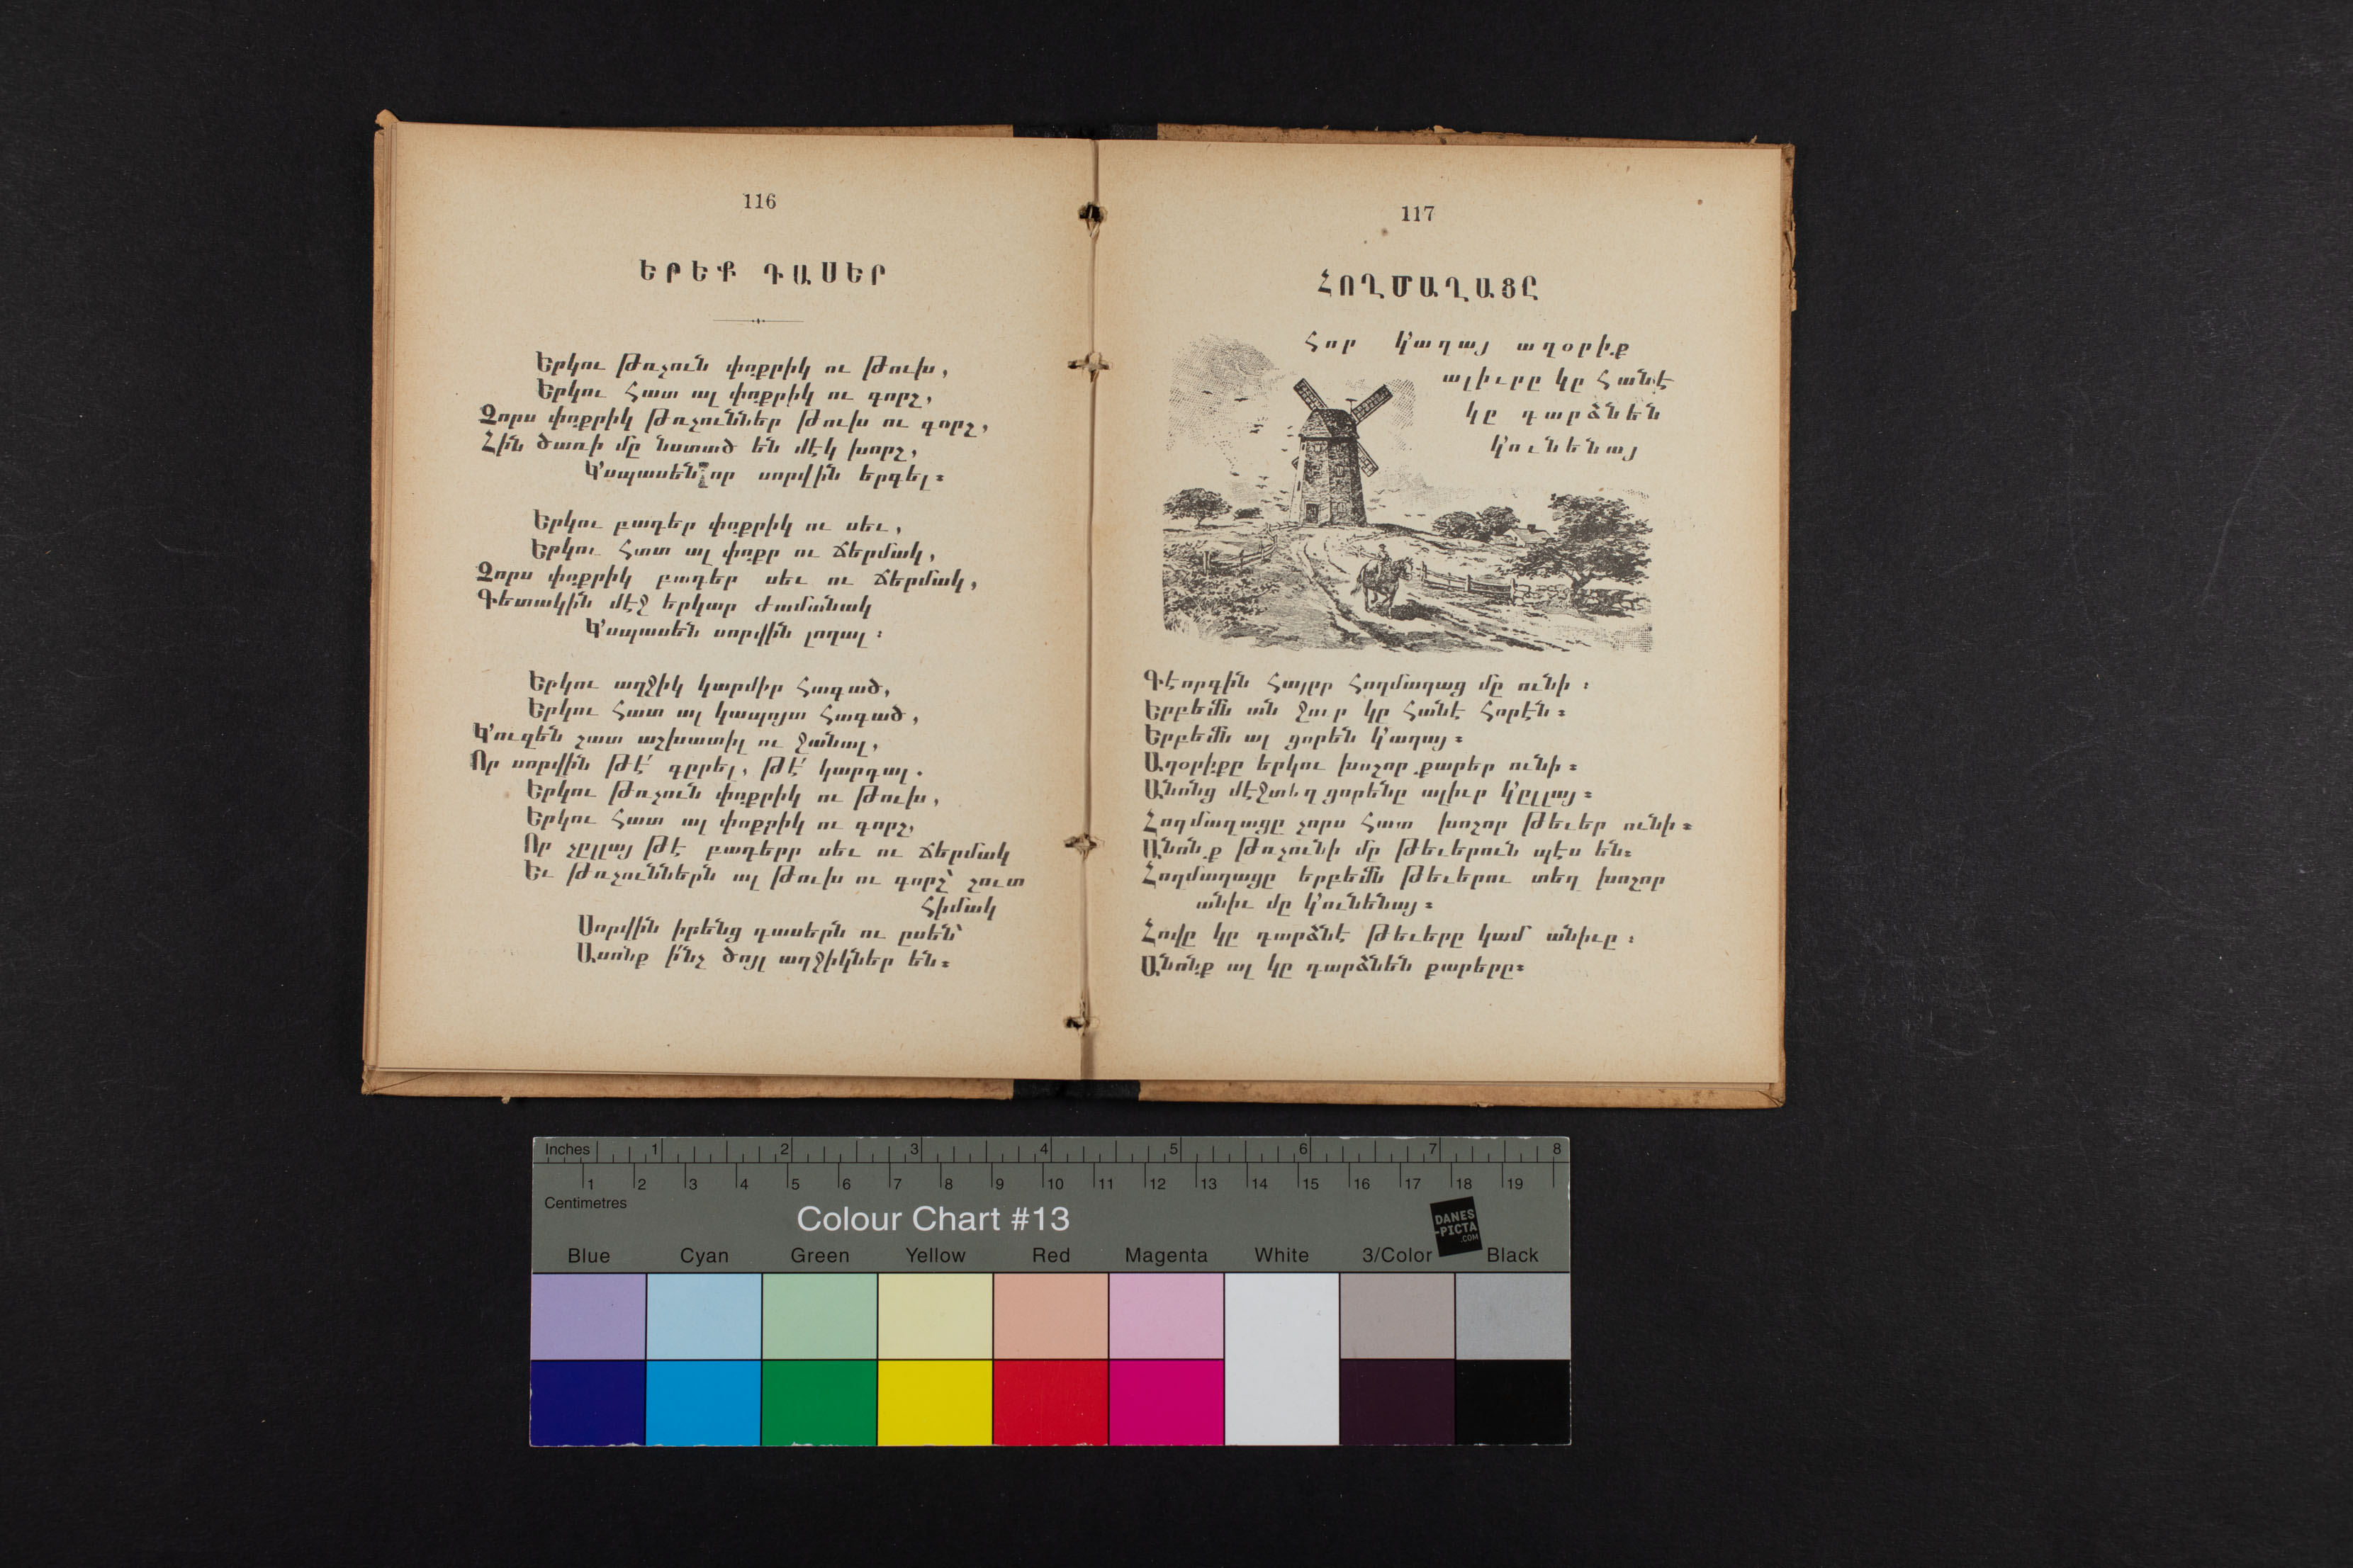 116
ԵՐԵՔ ԴԱՍԵՐ
Երկու թռչուն փոքրիկ ու թուխ,
Երկու հատ ալ փոքրիկ ու գորշ,
Չորս փոքրիկ թռչուններ թուխ ու գորշ,
Հին ծառի մը նստած են մէկ խորշ,
Կ՚սպասեն որ սորվին երգել։
Երկու բադեր փոքրիկ ու սեւ,
Երկու հատ ալ փոքր ու ճերմակ,
Չորս փոքրիկ բադեր սեւ ու ճերմակ,
Գետակին մէջ երկար ժամանակ
Կ՚սպասեն սորվին լողալ։
Երկու աղջիկ կարմիր հագած,
Երկու հատ ալ կապոյտ հագած,
Կ՚ուզեն շատ աշխատիլ ու ջանալ,
Որ սորվին թէ՛ գըրել, թէ՛ կարդալ.
Երկու թռչուն փոքրիկ ու թուխ,
Երկու հատ ալ փոքրիկ ու գորշ,
Որ չըլլայ թէ բադերը սեւ ու ճերմակ
Եւ թռչուններն ալ թուխ ու գորշ՝ շուտ
հիմակ
Սորվին իրենց դասերն ու ըսեն՝
Ասոնք ի՛նչ ծոյլ աղջիկներ են։
117
ՀՈՂՄԱՂԱՑԸ
հոր կ՚աղայ աղօրիք
ալիւրը կը հանէ
կը դարձնեն
կ՚ունենայ
Գէորգին հայրը հողմաղաց մը ունի։
Երբեմն ան ջուր կը հանէ հորէն։
Երբեմն ալ ցորեն կ՚աղայ։
Աղօրիքը երկու խոշոր քարեր ունի։
Անոնց մէջտեղ ցորենը ալիւր կ՚ըլլայ։
Հողմաղացը չորս հատ խոշոր թեւեր ունի։
Անոնք թռչունի մը թեւերուն պէս են։
Հողմաղացը երբեմն թեւերու տեղ խոշոր
անիւ մը կ՚ունենայ։
Հովը կը դարձնէ թեւերը կամ անիւը։
Անոնք ալ կը դարձնեն քարերը։
Inches 1 2 3 4 5 6 7 8
1 2 3 4 5 6 7 8 9 10 11 12 13 14 15 16 17 18 19
Centimetres
Colour Chart #13
DANES
-PICTA
.COM
Blue Cyan Green Yellow Red Magenta White 3/Color Black